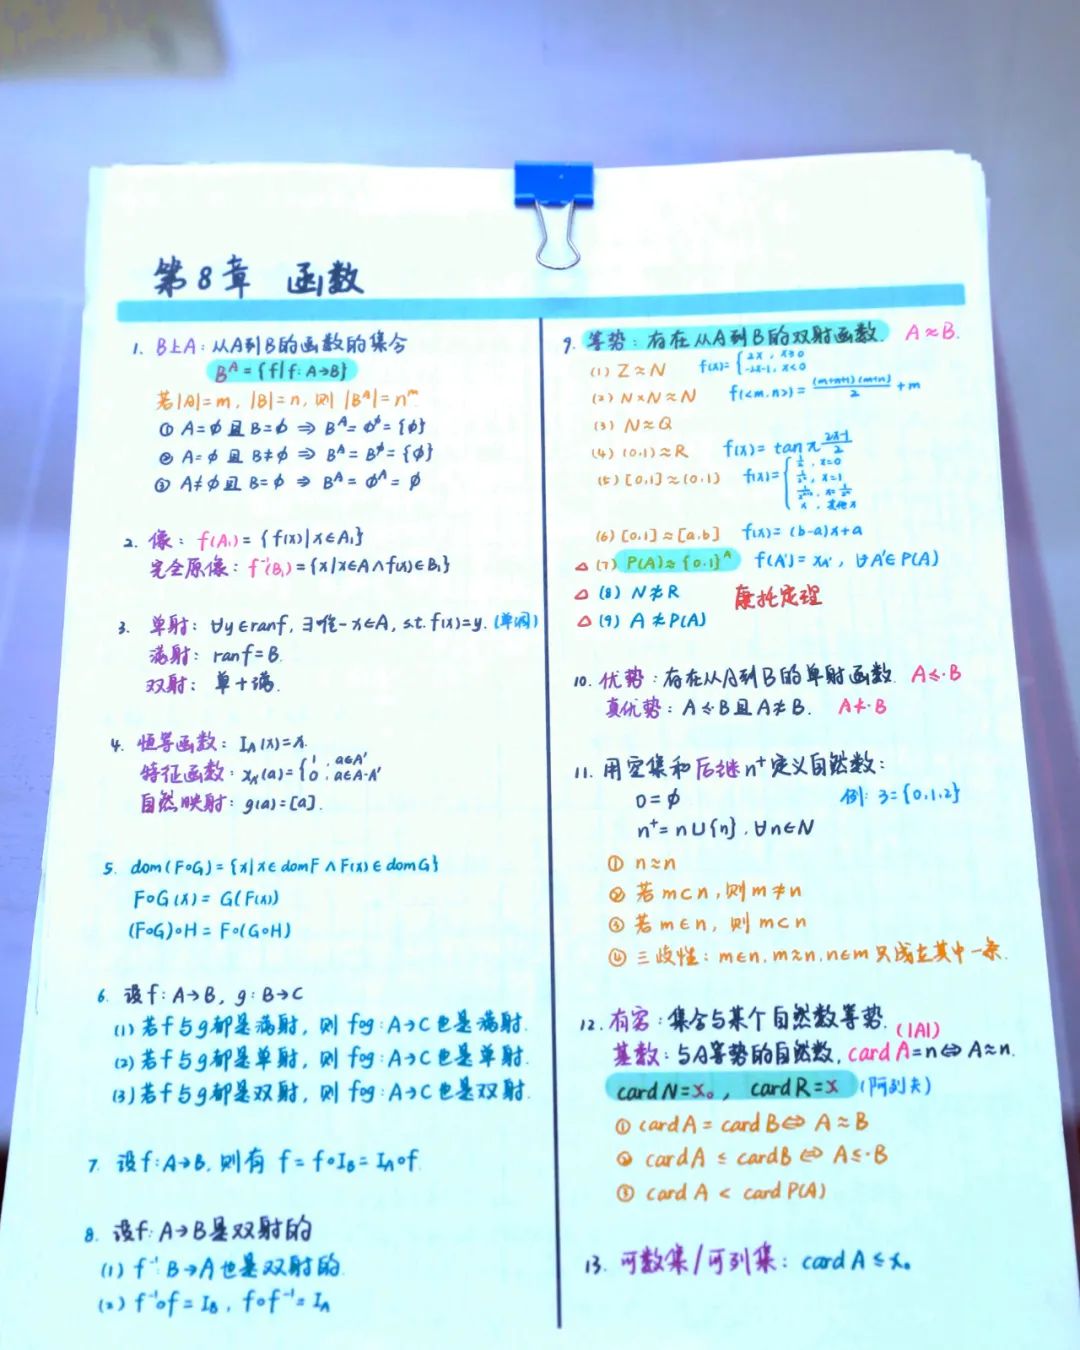 第8章 函数
1. B上A：从A到B的函数的集合
B^A = {f|f: A→B}
若|A|=m, |B|=n, 则 |B^A|=n^m
① A=∅且B=∅ ⇒ B^A=∅^∅={∅}
② A=∅且B≠∅ ⇒ B^A=B^∅={∅}
③ A≠∅且B=∅ ⇒ B^A=∅^A=∅
2. 像：f(A₁)={f(x)|x∈A₁}
完全原像：f⁻¹(B₁)={x|x∈A∧f(x)∈B₁}
3. 单射：∀y∈ranf, ∃唯一x∈A, s.t. f(x)=y. (单调)
满射：ranf=B.
双射：单+满.
4. 恒等函数：I_A(x)=x.
特征函数：χ_A'(a)={1, a∈A' 0, a∈A-A'
自然映射：g(a)=[a].
5. dom(F∘G)={x|x∈domF∧F(x)∈domG}
F∘G(x)=G(F(x))
(F∘G)∘H=F∘(G∘H)
6. 设f: A→B, g: B→C
(1) 若f与g都是满射, 则 f∘g: A→C也是满射.
(2) 若f与g都是单射, 则 f∘g: A→C也是单射.
(3) 若f与g都是双射, 则 f∘g: A→C也是双射.
7. 设f: A→B, 则有 f=f∘I_B=I_A∘f.
8. 设f: A→B是双射的
(1) f⁻¹: B→A也是双射的.
(2) f⁻¹∘f=I_B, f∘f⁻¹=I_A
9. 等势：存在从A到B的双射函数. A≈B.
(1) Z≈N f(x)={2x, x≥0 -2x-1, x<0
(2) N×N≈N f(<m,n>)=(m+n+1)(m+n)/2+m
(3) N≈Q
(4) (0,1)≈R f(x)=tanπ(2x-1)/2
(5) [0,1]≈(0,1) f(x)={1/2, x=0 1/2², x=1 x, 其他x
(6) [0,1]≈[a,b] f(x)=(b-a)x+a
△ (7) P(A)≈{0,1}^A f(A')=χ_A', ∀A'∈P(A)
△ (8) N≉R 康托定理
△ (9) A≉P(A)
10. 优势：存在从A到B的单射函数. A≼·B
真优势：A≼·B且A≉B. A≺·B
11. 用空集和后继n⁺定义自然数：
0=∅ 例: 3={0,1,2}
n⁺=n∪{n}, ∀n∈N
① n≈n
② 若m⊂n, 则m≉n
③ 若m∈n, 则m⊂n
④ 三歧性：m∈n, m≈n, n∈m只成立其中一条.
12. 有穷：集合与某个自然数等势. (|A|)
基数：与A等势的自然数, card A=n⇔A≈n.
card N=ℵ₀, card R=ℵ (阿列夫)
① card A = card B⇔A≈B
② card A ≤ card B⇔A≼·B
③ card A < card P(A)
13. 可数集/可列集：card A≤ℵ₀